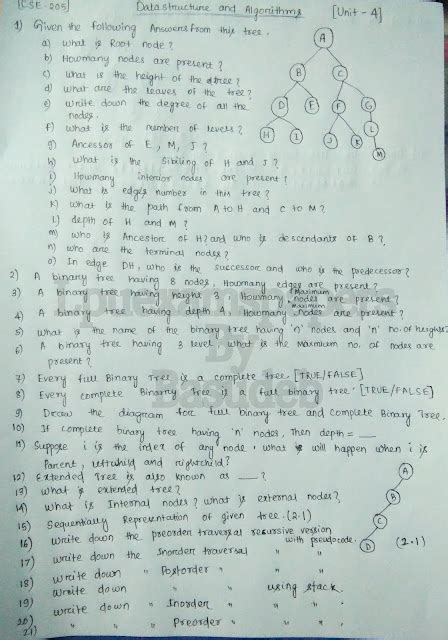 [CSE-205] Data structure and Algorithms [Unit-4]
1) Given the following Answers from this tree.
a) What is Root node?
b) How many nodes are present?
c) What is the height of the tree?
d) What are the leaves of the tree?
e) Write down the degree of all the
nodes.
f) What is the number of levels?
g) Ancessor of E, M, J?
h) What is the Sibiling of H and J?
i) How many interior nodes are present?
j) What is edges number in this tree?
k) What is the path from A to H and C to M?
L) depth of H and M?
m) Who is Ancestor of H? and who is descendants of B?
n) who are the terminal nodes?
o) In edge DH, who is the successor and who is the predecessor?
A
B C
D E F G
H I J K L
M
2) A binary tree having 8 nodes, How many edges are present?
3) A binary tree having height 3. How many Maximum nodes are present?
4) A binary tree having depth 4. How many maximum nodes are present?
5) What is the name of the binary tree having 'n' nodes and 'n' no. of height?
6) A binary tree having 3 level, what is the Maximum no. of nodes are
present?
7) Every full Binary Tree is a complete tree. [TRUE/FALSE]
8) Every complete Binary Tree is a full binary tree. [TRUE/FALSE]
9) Draw the diagram for full binary tree and complete Binary Tree.
10) If complete binary tree having 'n' nodes, Then depth = __
11) Suppose i is the index of any node. What will happen when i is
Parent, leftchild and rightchild?
12) Extended Tree is also known as ___?
13) What is extended tree?
14) What is Internal nodes? What is external nodes?
15) Sequentially Representation of given tree. (2.1)
16) Write down the preorder traversal recursive version
with pseudocode.
17) Write down the Inorder traversal " "
18) Write down " Postorder " " "
19) Write down " " using stack.
20) Write down " Inorder " " "
21) " " Preorder " " "
A
B
C
D
(2.1)